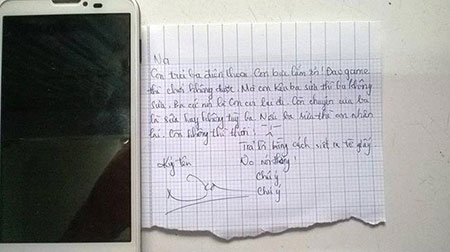 Con trả ba điện thoại. Con bực lắm rồi! Đao game
thì chơi không được. Mà con kêu ba sửa thì ba không
sửa. Ba cứ nói là con cứ đi. Còn chuyện của ba
là sửa hay không tuỳ ba. Nếu ba sửa thì con nhận
lại. Còn không thì thôi!
Trả lời bằng cách viết ra tờ giấy
Ký tên No nói
Chú ý
Chú ý